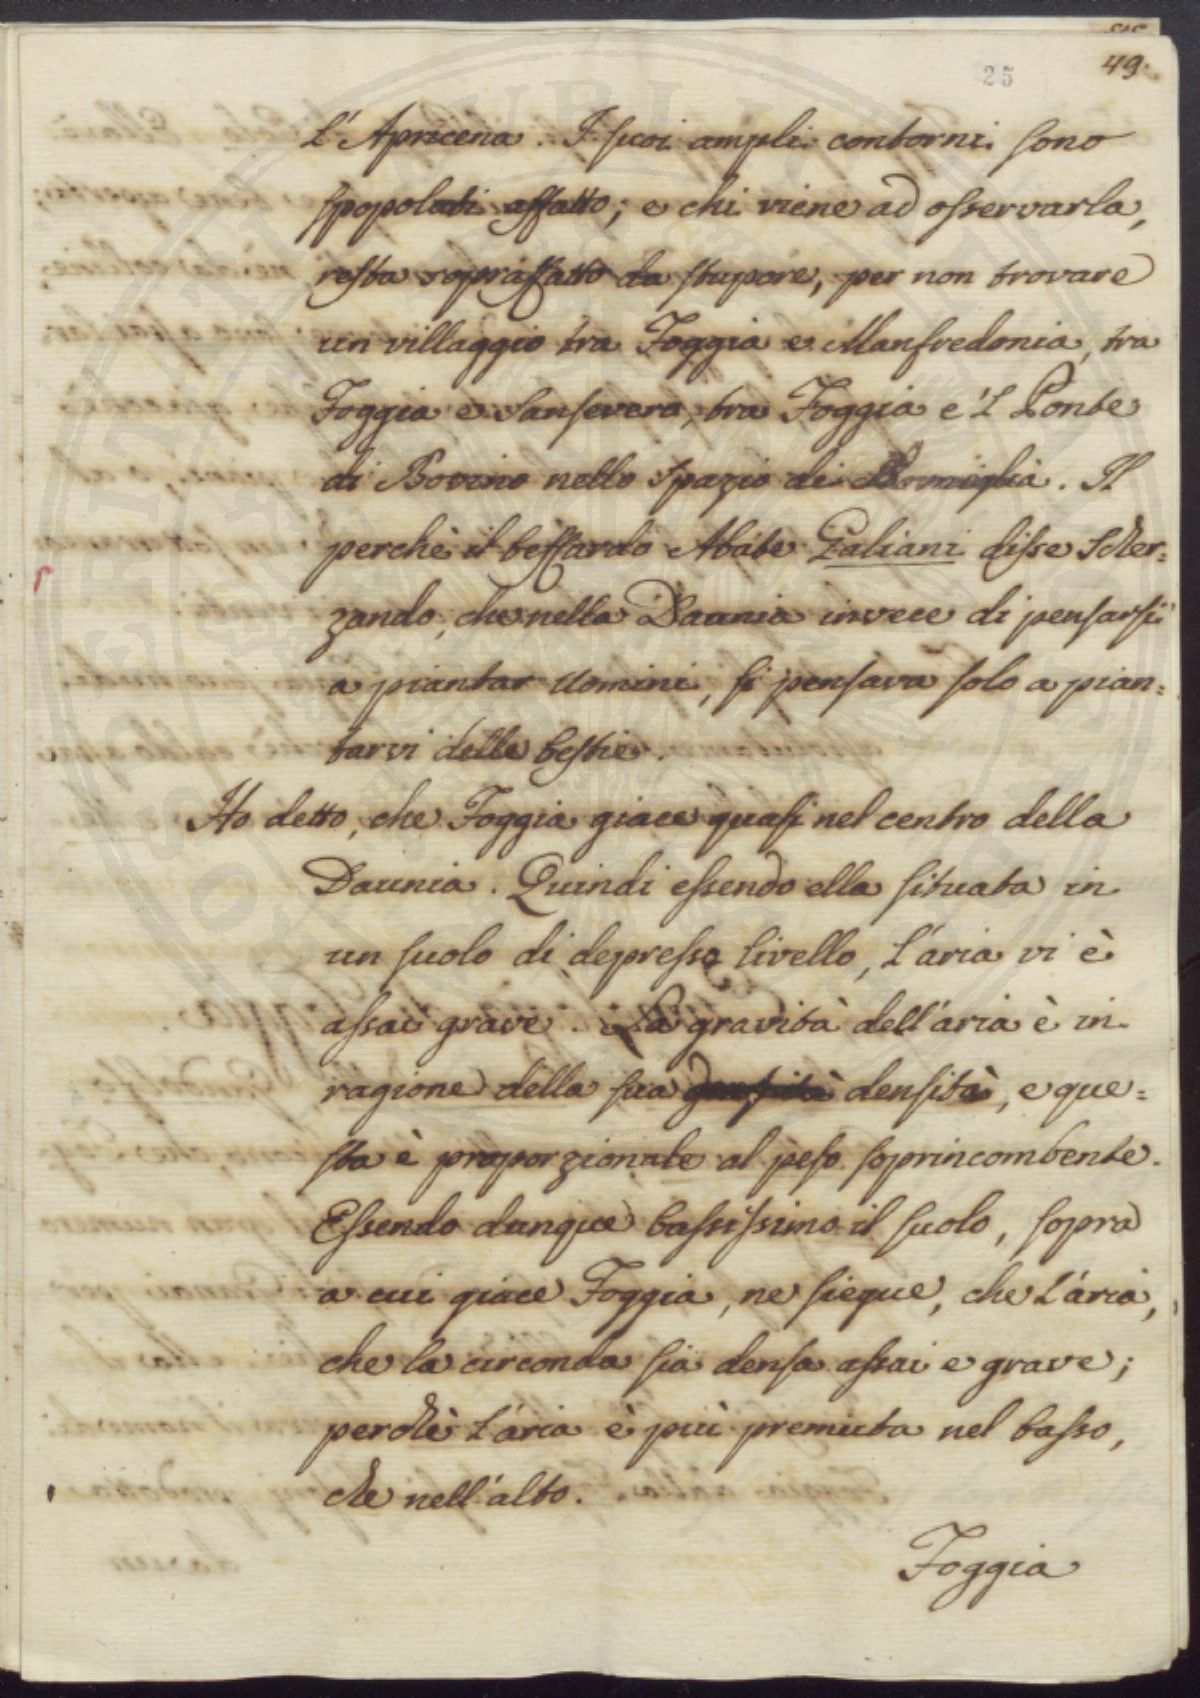 49.
25
L'Apricena. I suoi ampli contorni sono
spopolati affatto; e chi viene ad osservarla,
resta soprafatto da stupore, per non trovare
un villaggio tra Foggia e Manfredonia, tra
Foggia e Sansevero, tra Foggia e 'l Ponte
di Bovino nello spazio di miglia. Il
perchè il beffardo Abate Galiani disse scher=
zando, che nella Daunia invece di pensarsi
a piantar uomini, si pensava solo a pian=
tarvi delle bestie.
Ho detto, che Foggia giace quasi nel centro della
Daunia. Quindi essendo ella situata in
un suolo di depresso livello, l'aria vi è
assai grave. La gravità dell'aria è in
ragione della sua densità, e que=
sta è proporzionale al peso soprincombente.
Essendo dunque bassissimo il suolo, sopra
a cui giace Foggia, ne sieque, che l'aria,
che la circonda sia densa assai e grave;
perchè l'aria è più premuta nel basso,
che nell'alto.
Foggia